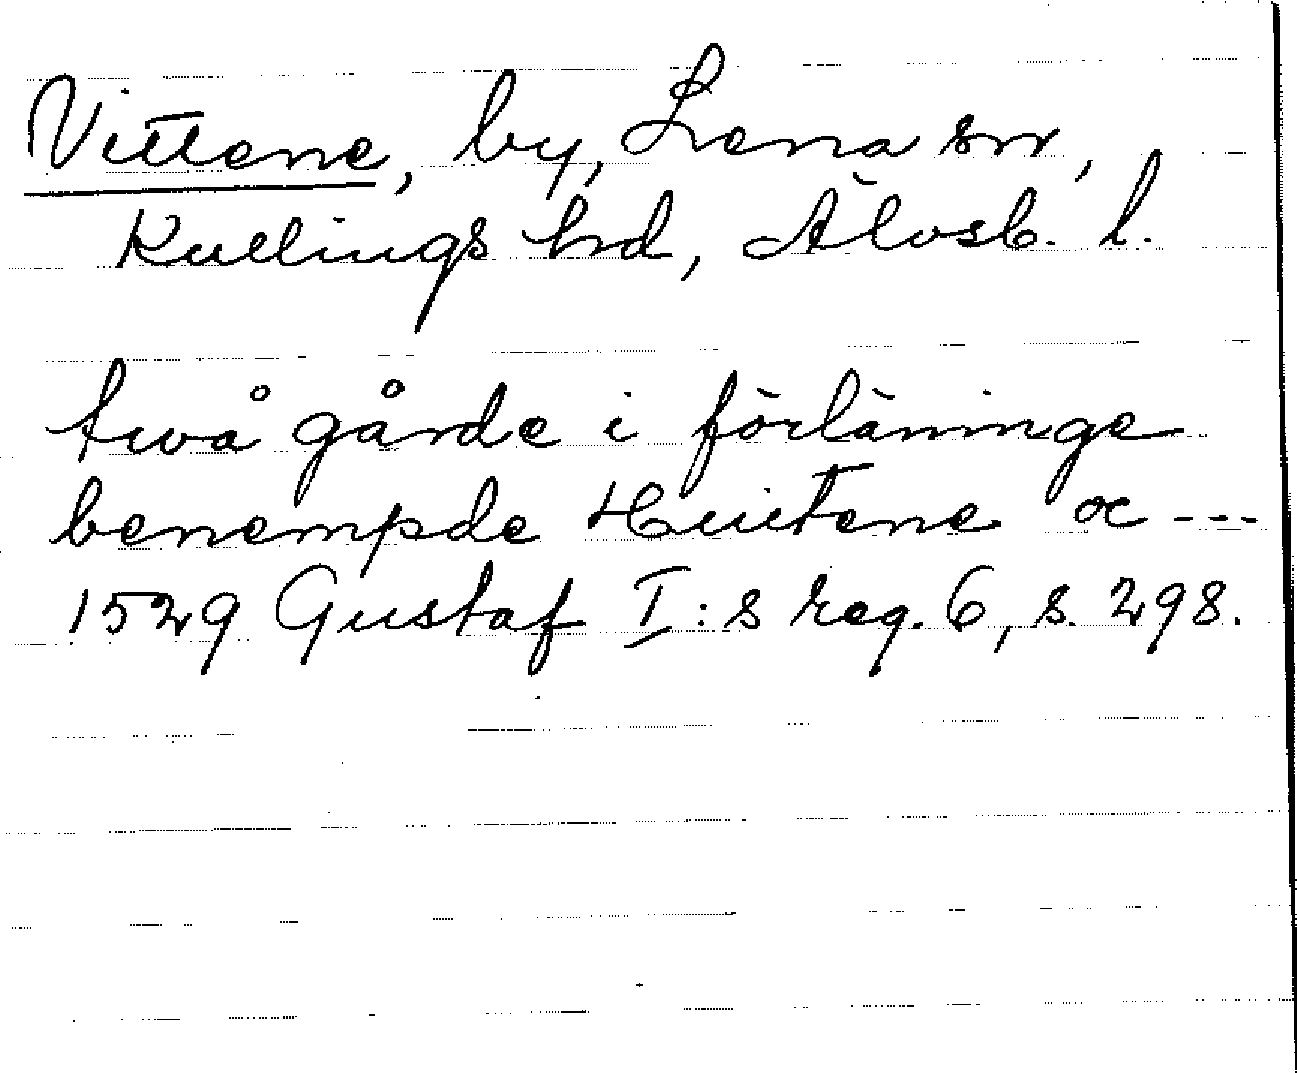 Vittene, by, Lena sn,
Kullings hd, Älvsb. l.
twå gårde i förläninge
benempde Huitene oc ---
1529 Gustaf I:s reg. 6, s. 298.